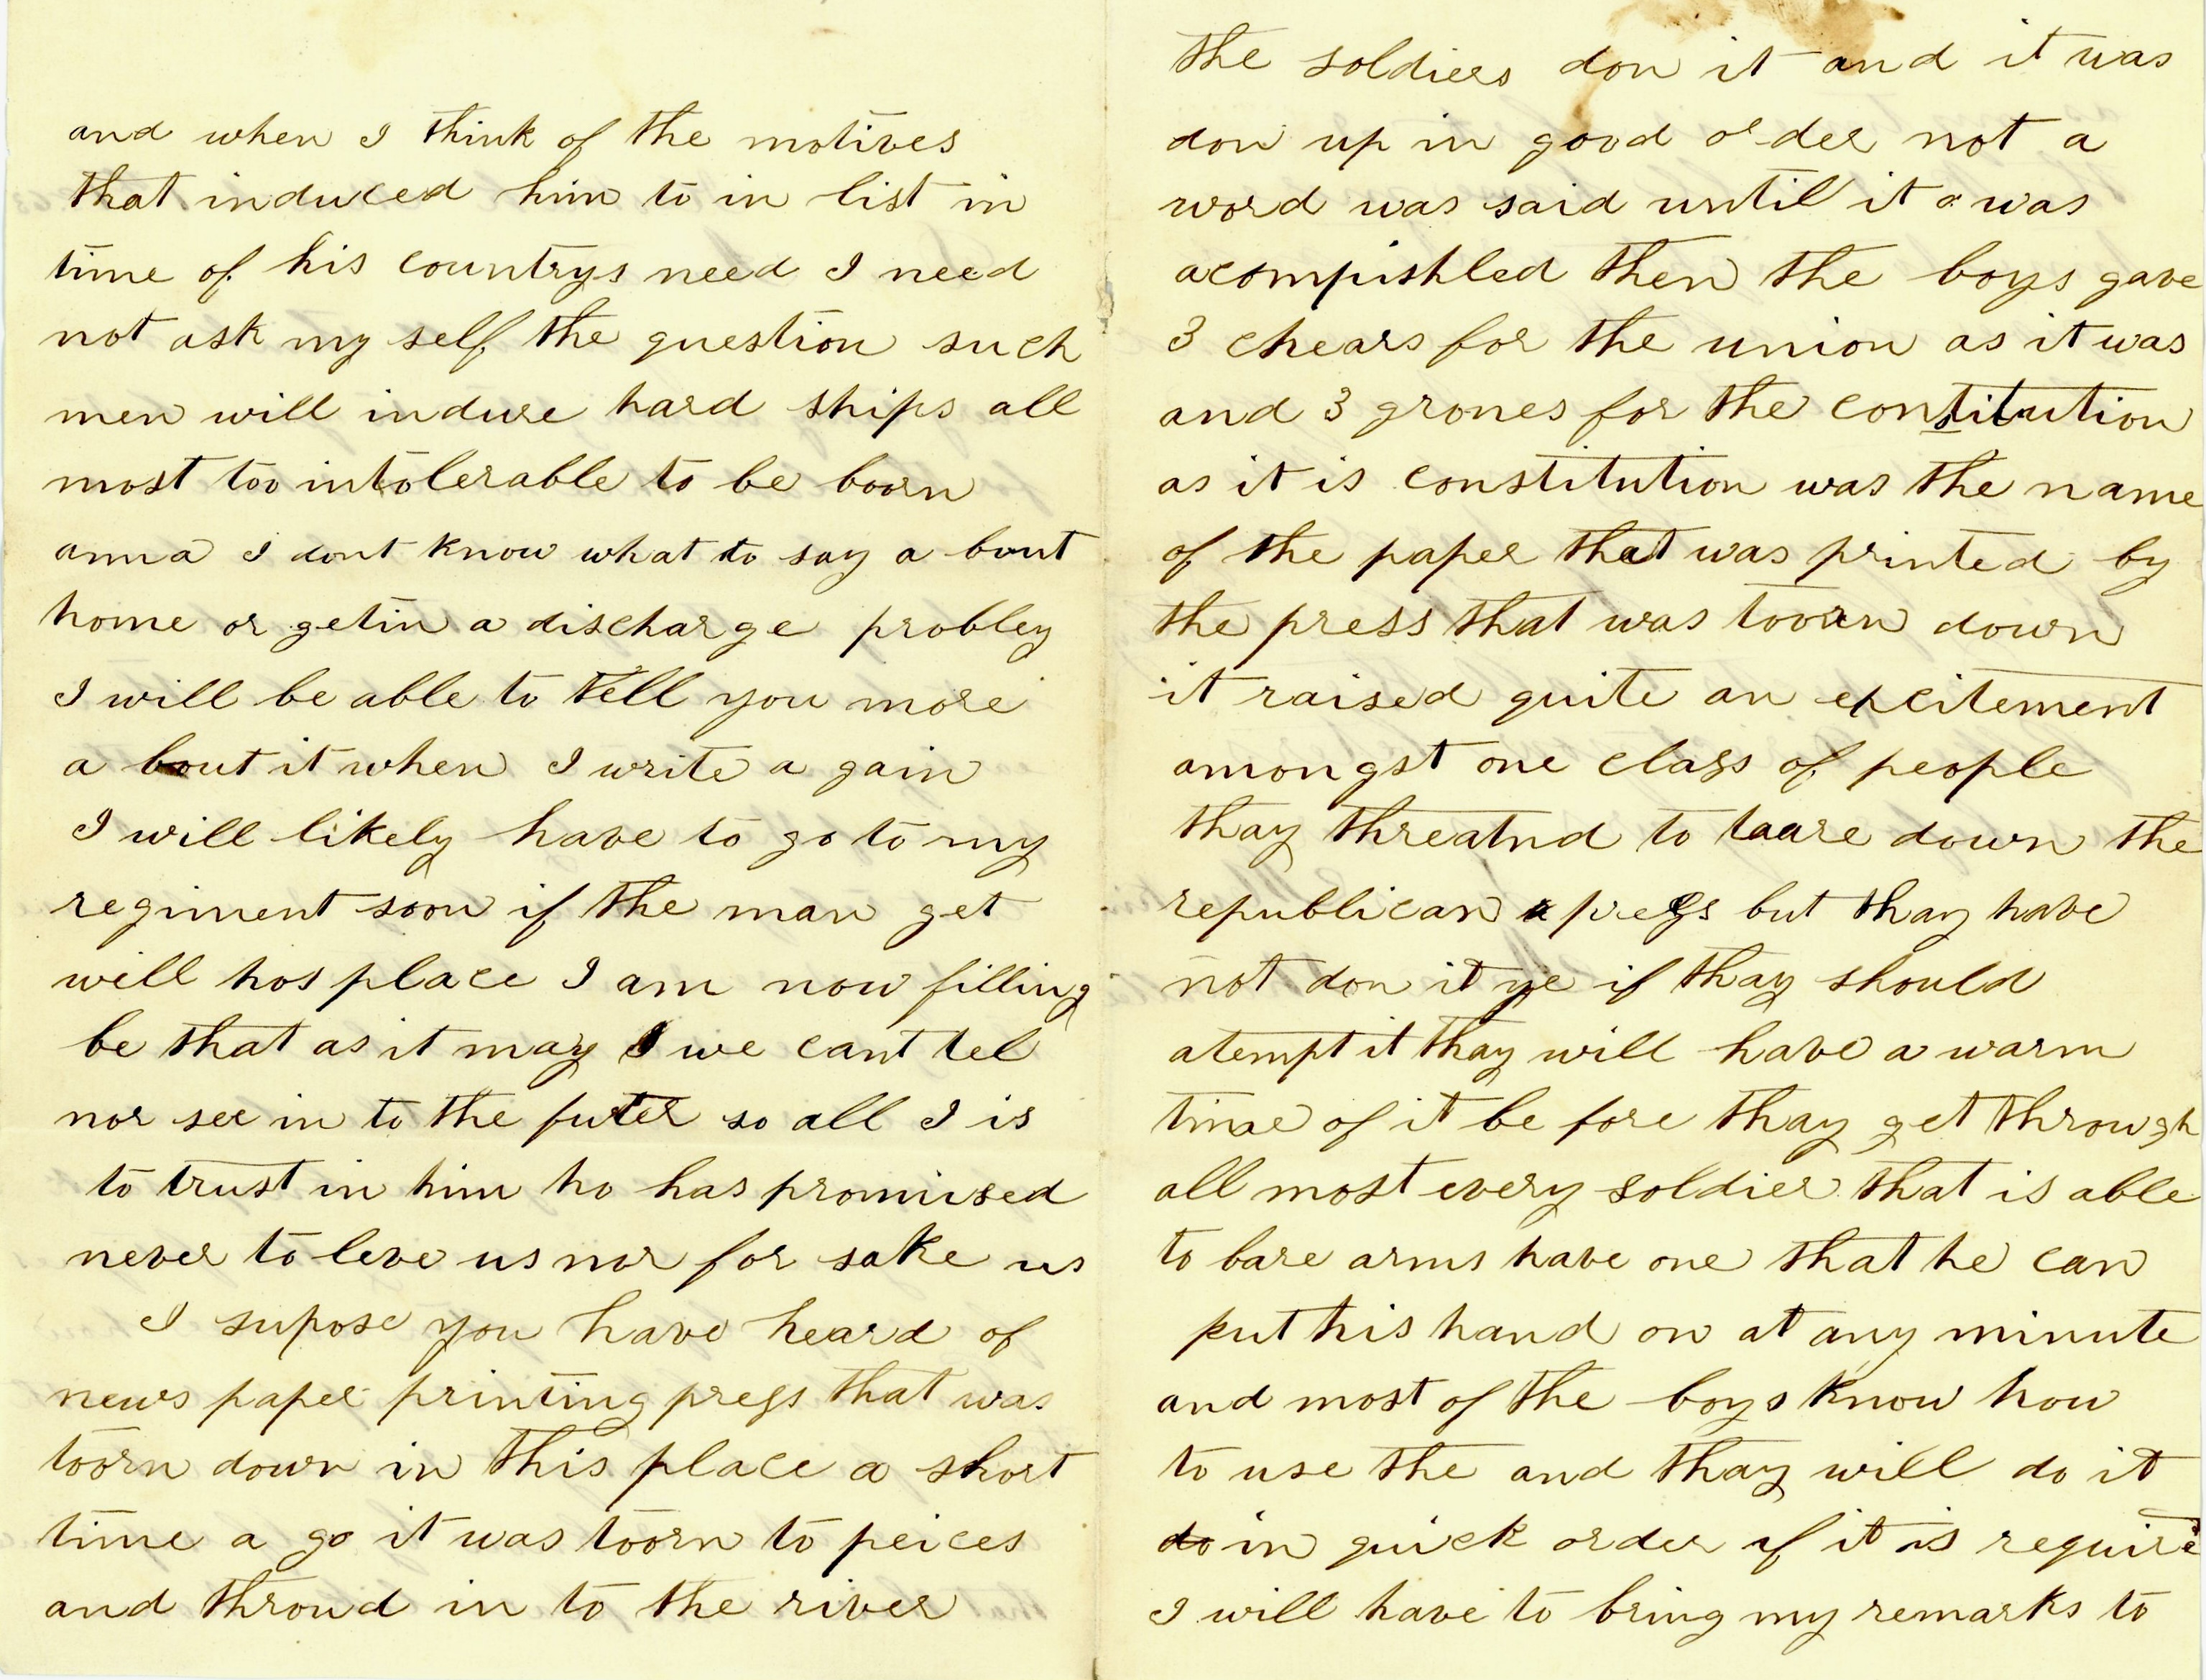 and when I think of the motives
that induced him to in list in
time of his countrys need I need
not ask my self the question such
men will indure hard ships all
most too intolerable to be boorn
anna I dont know what to say a bout
home or getin a discharge probley
I will be able to tell you more
a bout it when I write a gain
I will likely have to go to my
regiment soon if the man get
will hos place I am now filling
be that as it may I we cant tel
nor see in to the futer so all I is
to trust in him ho has promised
never to leve us nor for sake us
I supose you have heard of
news paper printing press that was
toorn down in this place a short
time a go it was toorn to peices
and throwd in to the river
the soldiers don it and it was
don up in good order not a
word was said until it a was
acompishled then the boys gave
3 chears for the union as it was
and 3 grones for the constitution
as it is constitution was the name
of the paper that was printed by
the press that was toorn down
it raised quite an excitement
amongst one class of people
thay threatnd to taare down the
republican press but thay have
not don it ye if thay should
atempt it thay will have a warm
time of it be fore thay get through
all most every soldier that is able
to bare arms have one that he can
put his hand on at any minute
and most of the boys know how
to use the and thay will do it
do in quick order if it is require
I will have to bring my remarks to